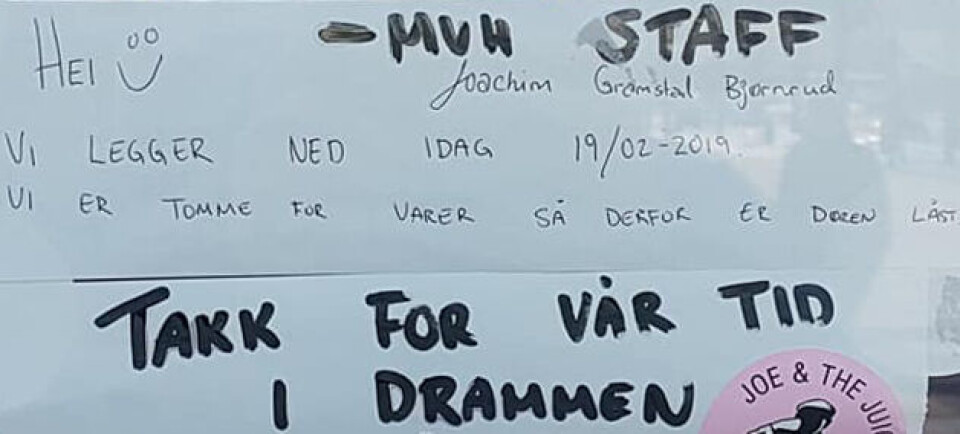 HEI
- MVH STAFF
Joachim Grømstal Bjørnrud
VI LEGGER NED IDAG 19/02-2019.
VI ER TOMME FOR VARER SÅ DERFOR ER DØREN LÅST
TAKK FOR VÅR TID
I DRAMMEN
JOE & THE JUIC